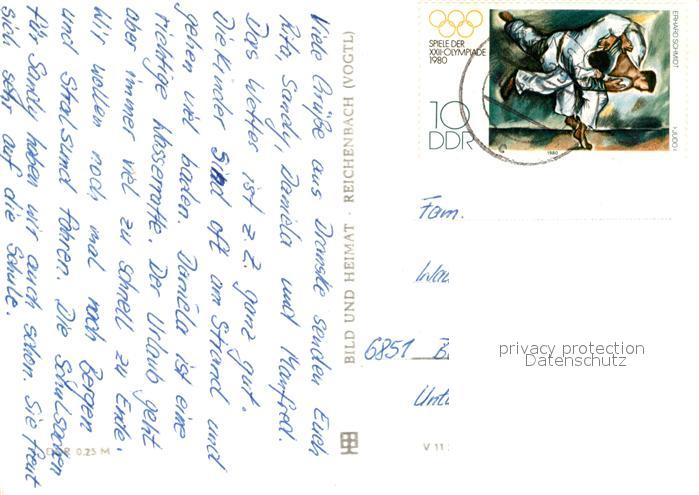 Viele Grüße aus Dranske senden Euch
Rita, Sandy, Daniéla und Manfred.
Das Wetter ist z. Z. ganz gut.
Die Kinder sind oft am Strand und
gehen viel baden. Daniéla ist eine
richtige Wasserratte. Der Urlaub geht
aber immer viel zu schnell zu Ende.
Wir wollen noch mal nach Bergen
und Stralsund fahren. Die Schulsachen
für Sandy haben wir auch schon. Sie freut
sich sehr auf die Schule.
BILD UND HEIMAT · REICHENBACH (VOGTL)
0,25 M
V 11
SPIELE DER
XXII. OLYMPIADE
1980
10
DDR
ERHARD SCHMIDT
»JUDO«
1980
Fam.
6851
privacy protection
Datenschutz